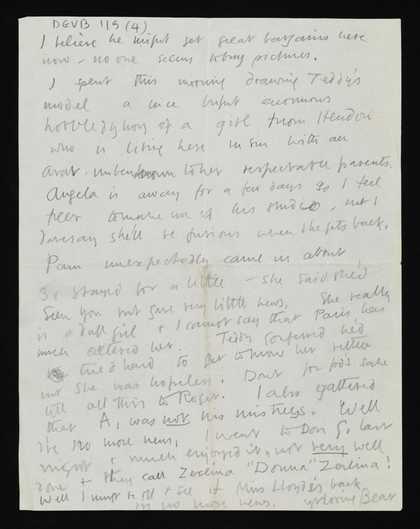 DGVB 115 (4)
I believe he might get great bargains here
now - no one seems to buy pictures.
I spent this morning drawing Teddy's
model a nice but enormous
hobbledyhoy of a girl from Hendon
who is living here in sin with an
Arab - unbeknown to her respectable parents.
Angela is away for a few days so I feel
free to make use of his studio, but I
daresay she'll be furious when she gets back.
Pam unexpectedly came in about
3, stayed for a little - she said she'd
seen you but gave very little news, She really
is a dull girl & I cannot say that Paris has
much altered her. Teddy confessed he'd
tried hard to get to know her better
but she was hopeless. Don't for god's sake
tell all this to Roger. I also gathered
that A, was not his mistress. Well
I've no more news, I went to Don G, last
night & much enjoyed it, not very well
done & they call Zerlina "Donna" Zerlina!
Well I must to off & see if Miss Lloyd's back,
no more news, yr loving Bear